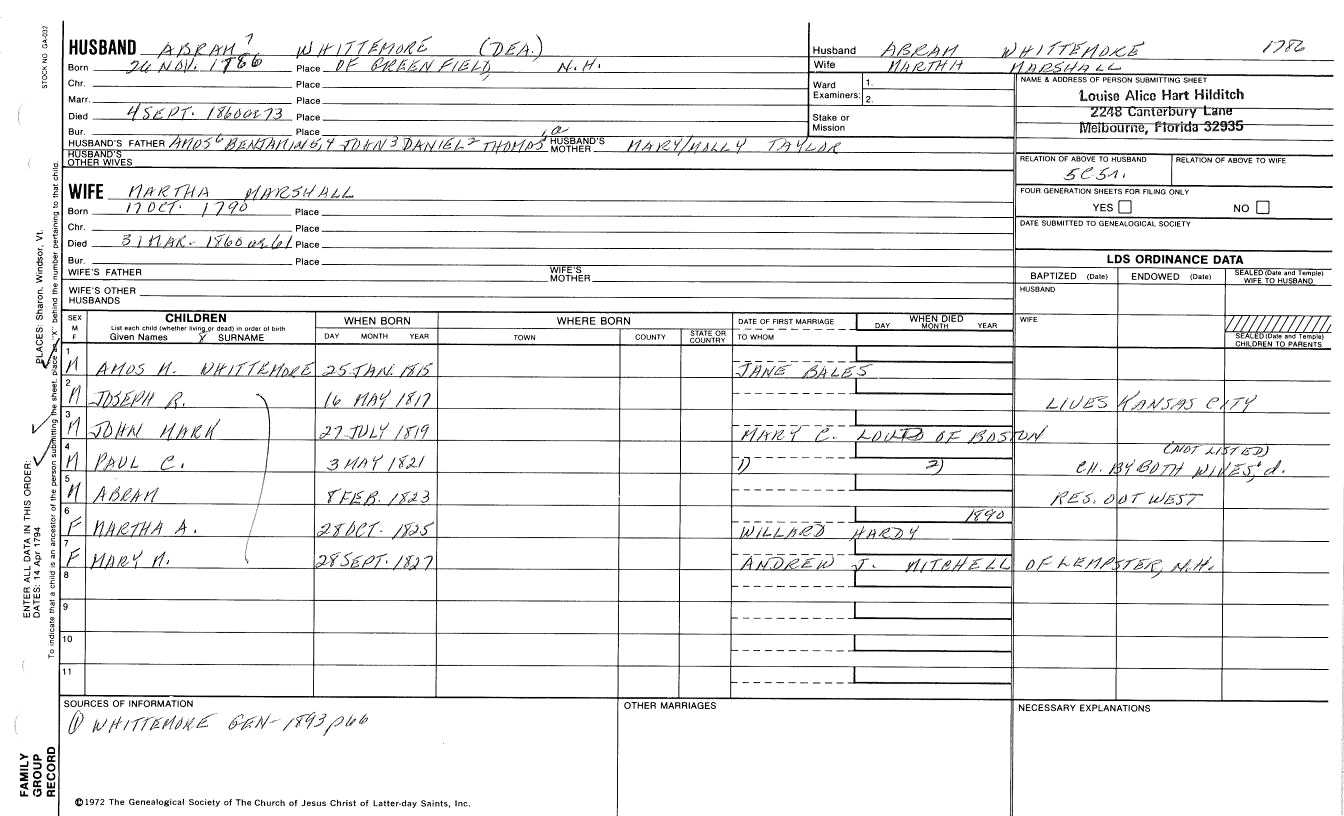 STOCK NO. GA-032
HUSBAND ABRAM 7 WHITTEMORE (DEA.)
Born 26 NOV. 1786 Place OF GREENFIELD, N.H.
Chr. Place
Marr. Place
Died 4 SEPT. 1860 OR 73 Place
Bur. Place
HUSBAND'S FATHER AMOS 6 BENJAMIN 5, 4 JOHN 3 DANIEL 2 THOMAS 1, a HUSBAND'S MOTHER MARY/MOLLY TAYLOR
HUSBAND'S OTHER WIVES
WIFE MARTHA MARSHALL
Born 17 OCT. 1790 Place
Chr. Place
Died 31 MAR. 1860 or 61 Place
Bur. Place
WIFE'S FATHER WIFE'S MOTHER
WIFE'S OTHER HUSBANDS
Husband ABRAM WHITTEMORE 1786
Wife MARTHA MARSHALL
Ward Examiners: 1.
2.
Stake or Mission
NAME & ADDRESS OF PERSON SUBMITTING SHEET
Louise Alice Hart Hilditch
2248 Canterbury Lane
Melbourne, Florida 32935
RELATION OF ABOVE TO HUSBAND RELATION OF ABOVE TO WIFE
5C5r.
FOUR GENERATION SHEETS FOR FILING ONLY
YES NO
DATE SUBMITTED TO GENEALOGICAL SOCIETY
LDS ORDINANCE DATA
BAPTIZED (Date) ENDOWED (Date) SEALED (Date and Temple) WIFE TO HUSBAND
HUSBAND
WIFE
SEALED (Date and Temple) CHILDREN TO PARENTS
SEX M F CHILDREN
List each child (whether living or dead) in order of birth
Given Names X SURNAME
WHEN BORN
DAY MONTH YEAR
WHERE BORN
TOWN COUNTY STATE OR COUNTRY
DATE OF FIRST MARRIAGE
TO WHOM
WHEN DIED
DAY MONTH YEAR
1 M AMOS M. WHITTEMORE 25 JAN. 1815 JANE BALES
2 M JOSEPH R. 16 MAY 1817 LIVES KANSAS CITY
3 M JOHN MARK 27 JULY 1819 MARY C. LOUD OF BOSTON
4 M PAUL C. 3 MAY 1821 1) 2) CH. BY BOTH WIVES, d. (NOT LISTED)
5 M ABRAM 8 FEB. 1823 RES. OUT WEST
6 F MARTHA A. 28 OCT. 1825 WILLARD HARDY 1890
7 F MARY M. 28 SEPT. 1827 ANDREW J. MITCHELL OF LEMPSTER, N.H.
8
9
10
11
SOURCES OF INFORMATION
① WHITTEMORE GEN- 1893 p66
OTHER MARRIAGES
NECESSARY EXPLANATIONS
©1972 The Genealogical Society of The Church of Jesus Christ of Latter-day Saints, Inc.
FAMILY GROUP RECORD
ENTER ALL DATA IN THIS ORDER:
DATES: 14 Apr 1794
PLACES: Sharon, Windsor, Vt.
To indicate that a child is an ancestor of the person submitting the sheet, place an "X" behind the number pertaining to that child.